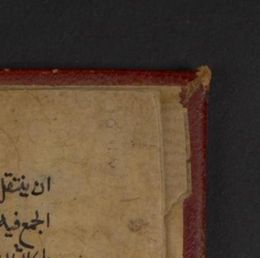 ان ينتقل
الجمع فيه